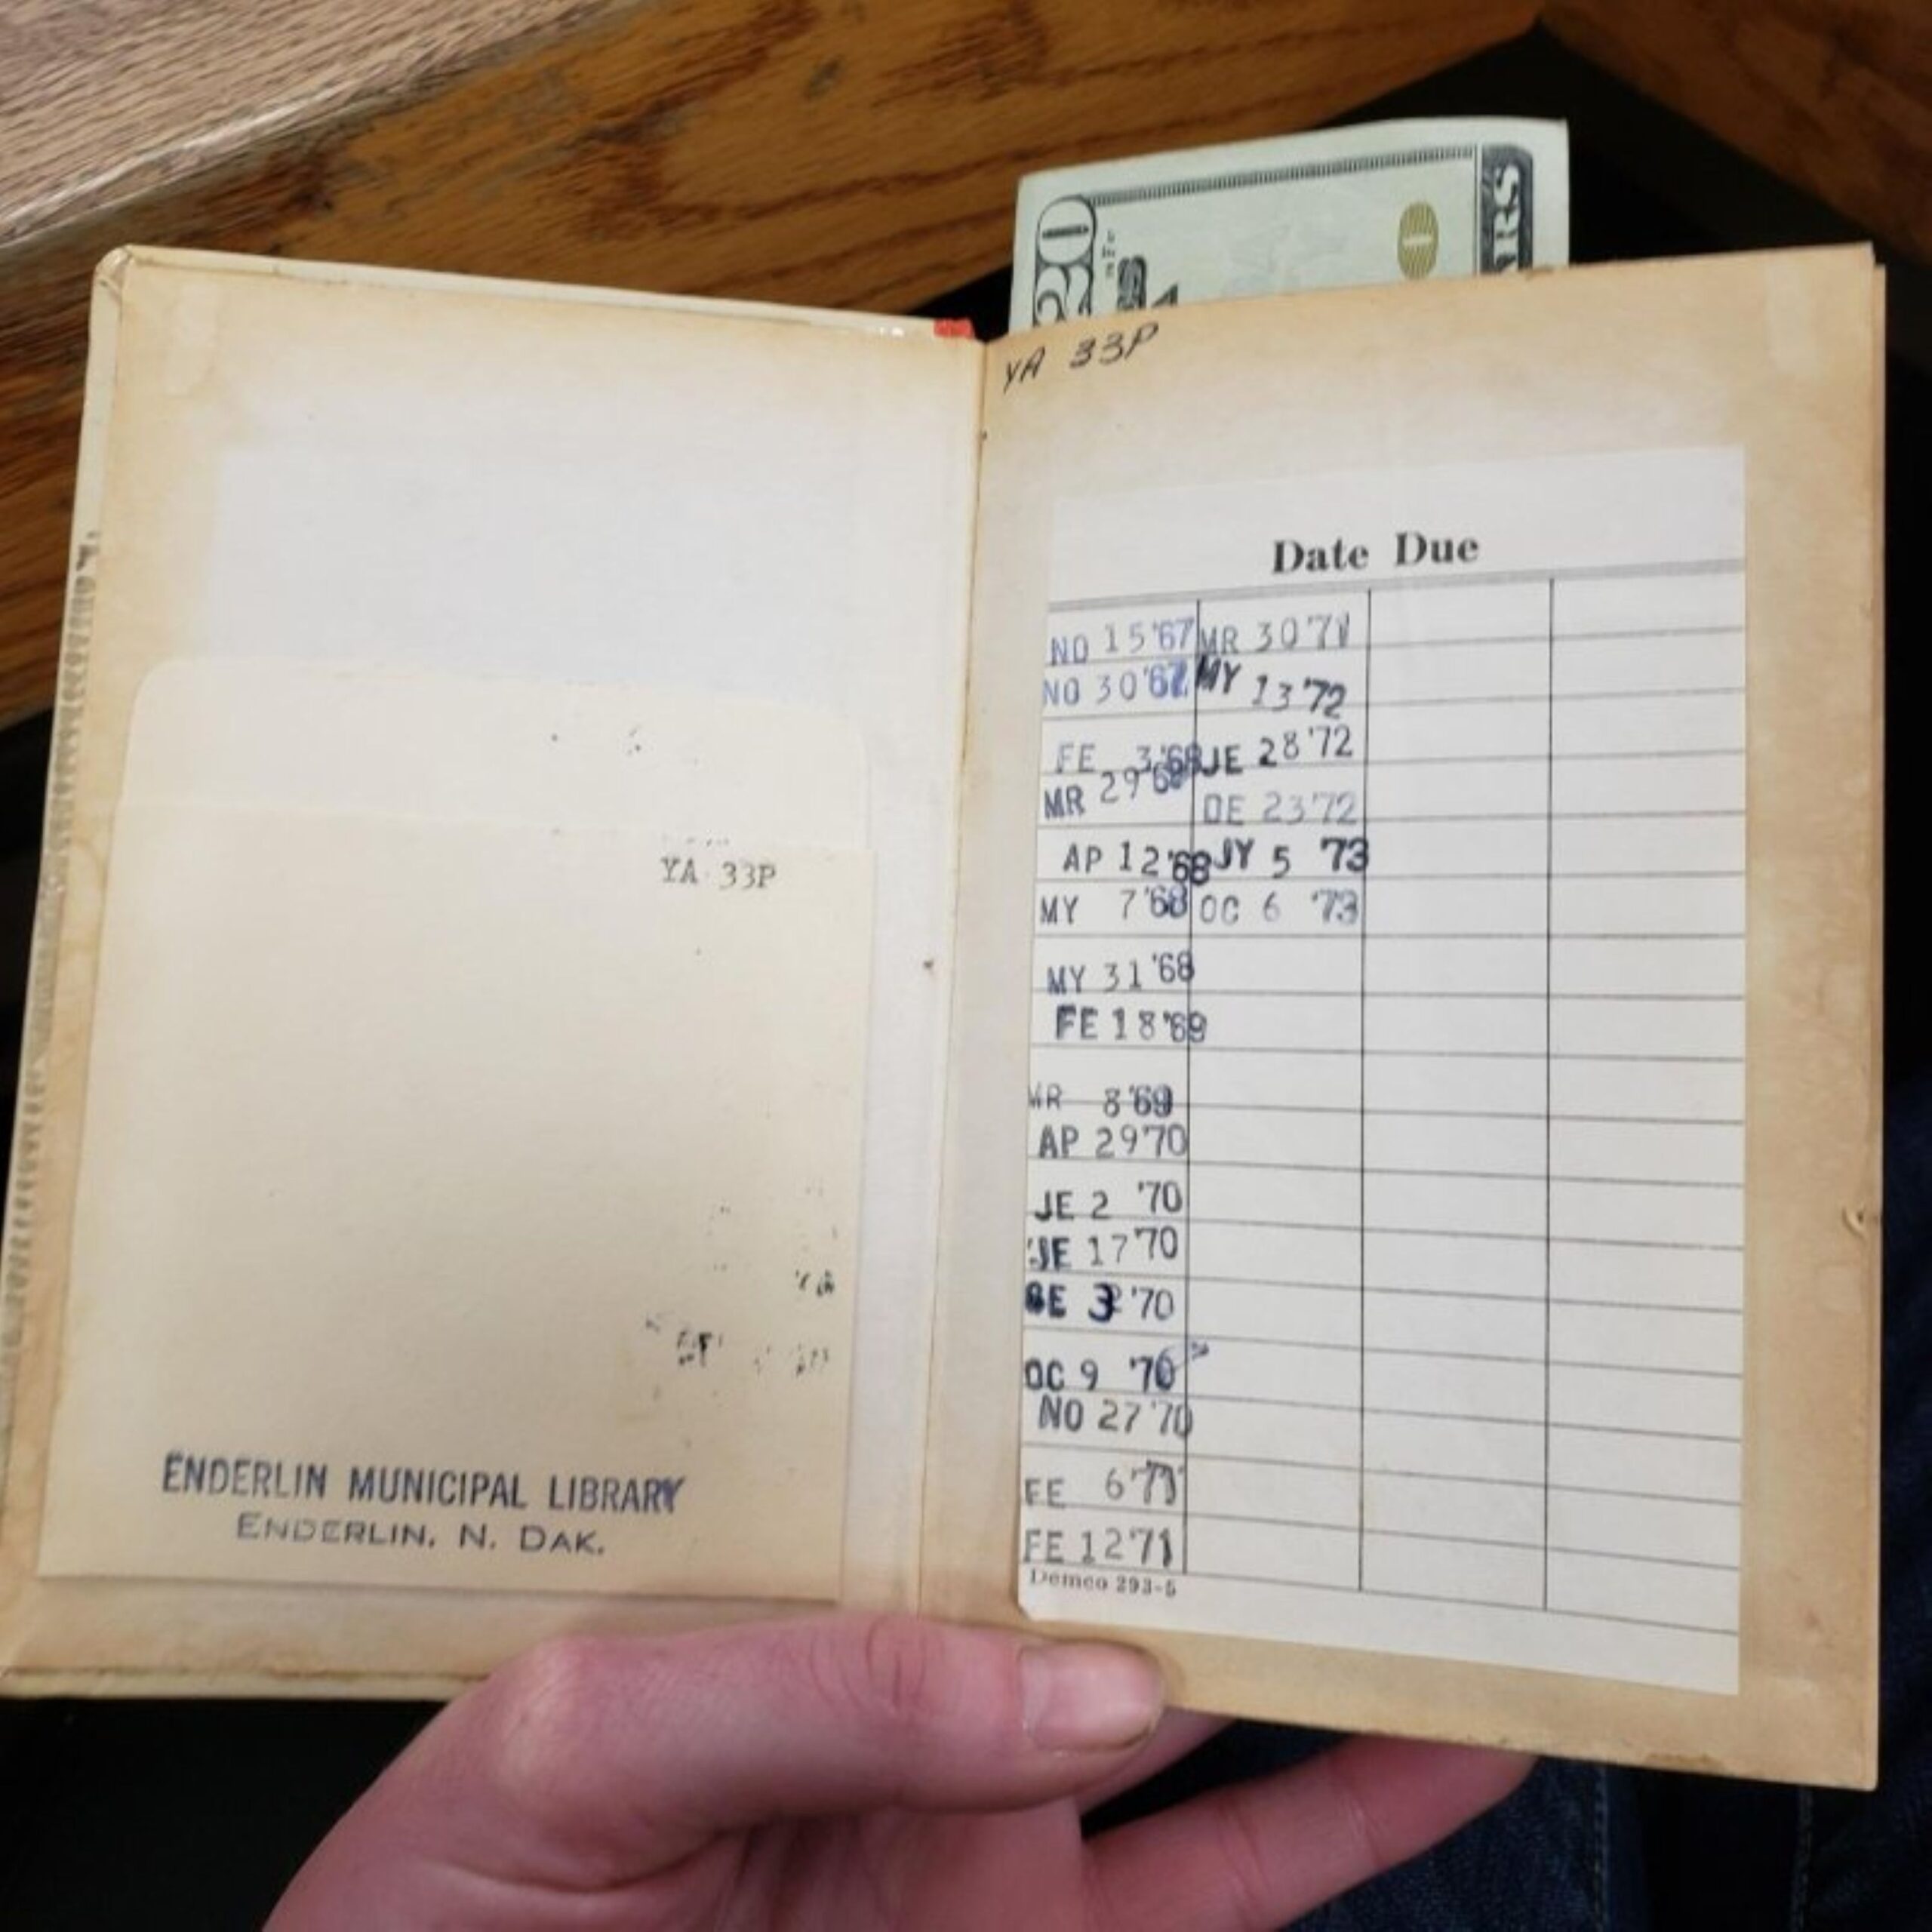 20
YA 33P
Date Due
NO 15 '67
NO 30 '67
FE 3 '68
MR 29 '68
AP 12 '68
MY 7 '68
MY 31 '68
FE 18 '69
MR 8 '69
AP 29 '70
JE 2 '70
JE 17 '70
SE '70
OC 9 '70
NO 27 '70
FE 6 '71
FE 12 '71
MR 30 '71
MY 13 '72
JE 28 '72
DE 23 '72
JY 5 '73
OC 6 '73
Demco 293-5
YA 33P
ENDERLIN MUNICIPAL LIBRARY
ENDERLIN, N. DAK.